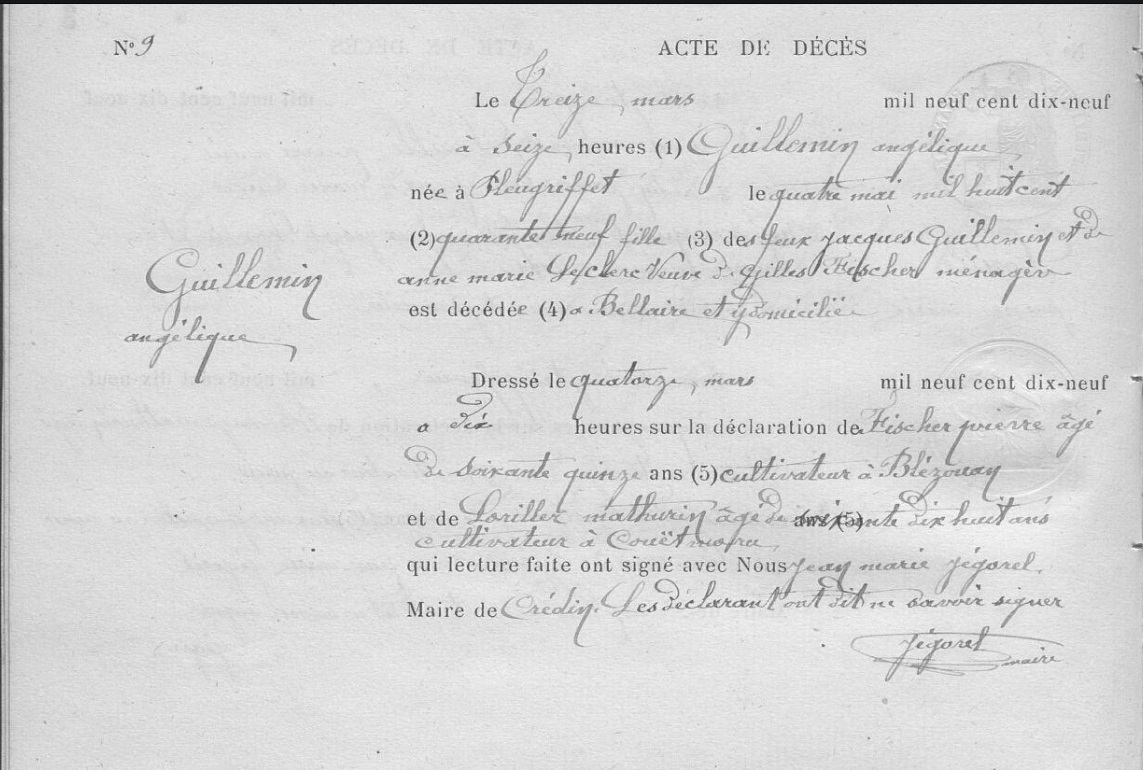 N° 9 ACTE DE DÉCÈS
Le Treize mars mil neuf cent dix-neuf
à seize heures (1) Guillemin angélique
née à Pleugriffet le quatre mai mil huit cent
(2) quarante neuf fille (3) des feux Jacques Guillemin et de
anne marie Leclerc Veuve de Gilles Fischer ménagère
est décédée (4) a Bellaire et y domiciliée
Guillemin
angélique
Dressé le quatorze mars mil neuf cent dix-neuf
a dix heures sur la déclaration de Fischer pierre âgé
de soixante quinze ans (5) cultivateur à Blézouan
et de Loriller mathurin âgé de soixante dix huit ans
cultivateur à
qui lecture faite ont signé avec Nous Jean marie Jégorel
Maire de Crédin. Les déclarant ont dit ne savoir signer
Jégorel
maire